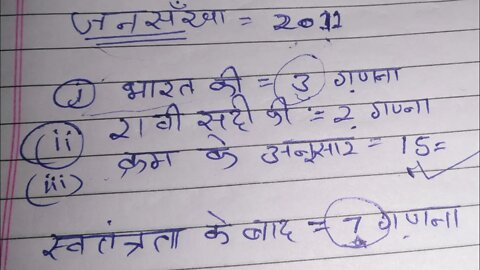 जनसँख्या = 2011
(i) भारत की = 3 गणना
(ii) 21 वी सदी की = 2 गणना
(iii) क्रम के अनुसार = 15 =
स्वतंत्रता के बाद = 7 गणना